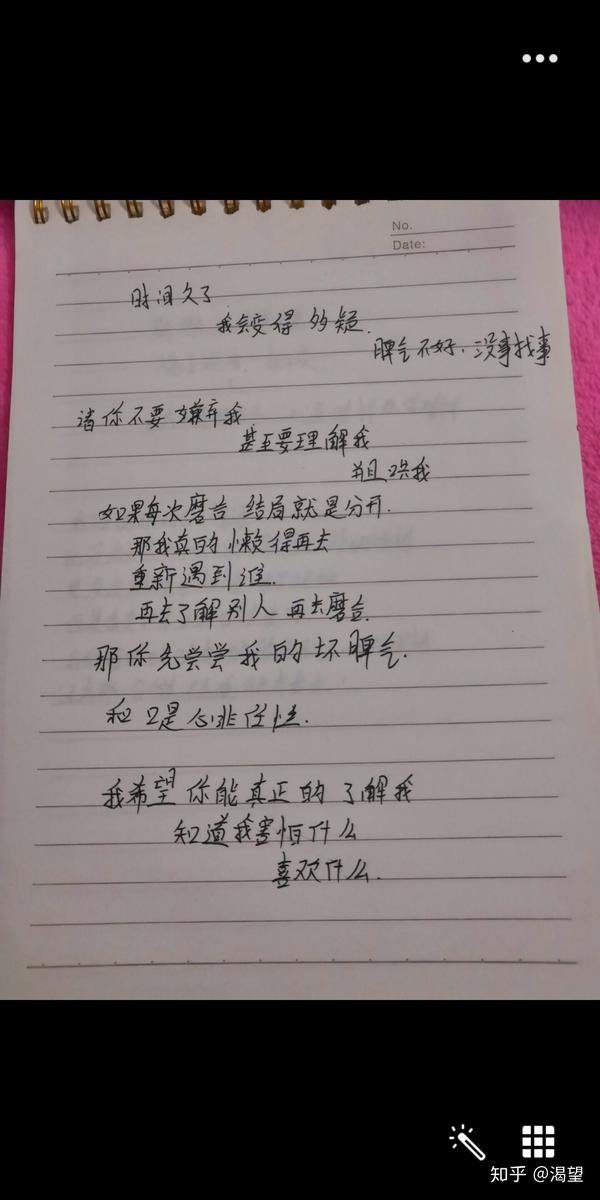 No.
Date:
时间久了
我会变得多疑.
脾气不好,没事找事
请你不要嫌弃我
甚至要理解我
并且哄我
如果每次磨合 结局就是分开.
那我真的懒得再去
重新遇到谁.
再去了解别人 再去磨合.
那你先尝尝我的坏脾气.
和口是心非任性.
我希望你能真正的了解我
知道我害怕什么
喜欢什么.
知乎 @渴望